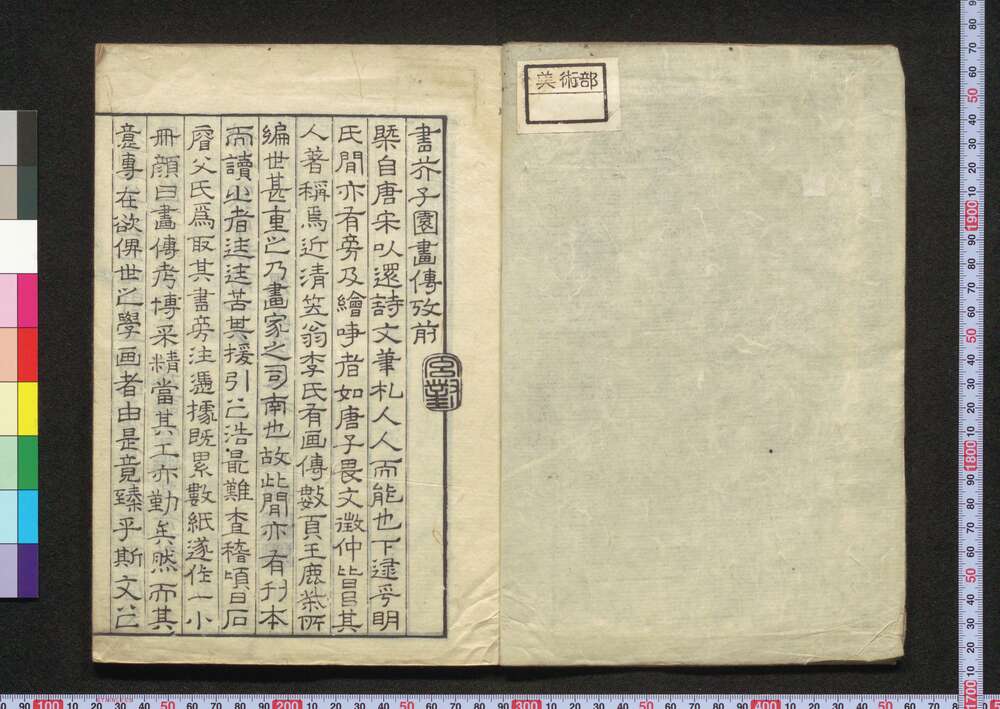 美術部
書芥子園畫傳攷前
槩自唐宋以還詩文筆札人人而能也下逮乎明
氏間亦有旁及繪事者如唐子畏文徵仲皆以其
人著稱焉近清笠翁李氏有画傳數頁王鹿柴所
編世甚重之乃畫家之司南也故此間亦有刊本
而讀之者迬迬苦其援引之浩最難査稽頃日石
脣父氏爲取其書旁注
據既累數紙遂作一小
冊顔曰畫傳考博采精當其工亦勤矣然而其
意專在欲俾世之學画者由是竟臻乎斯文之